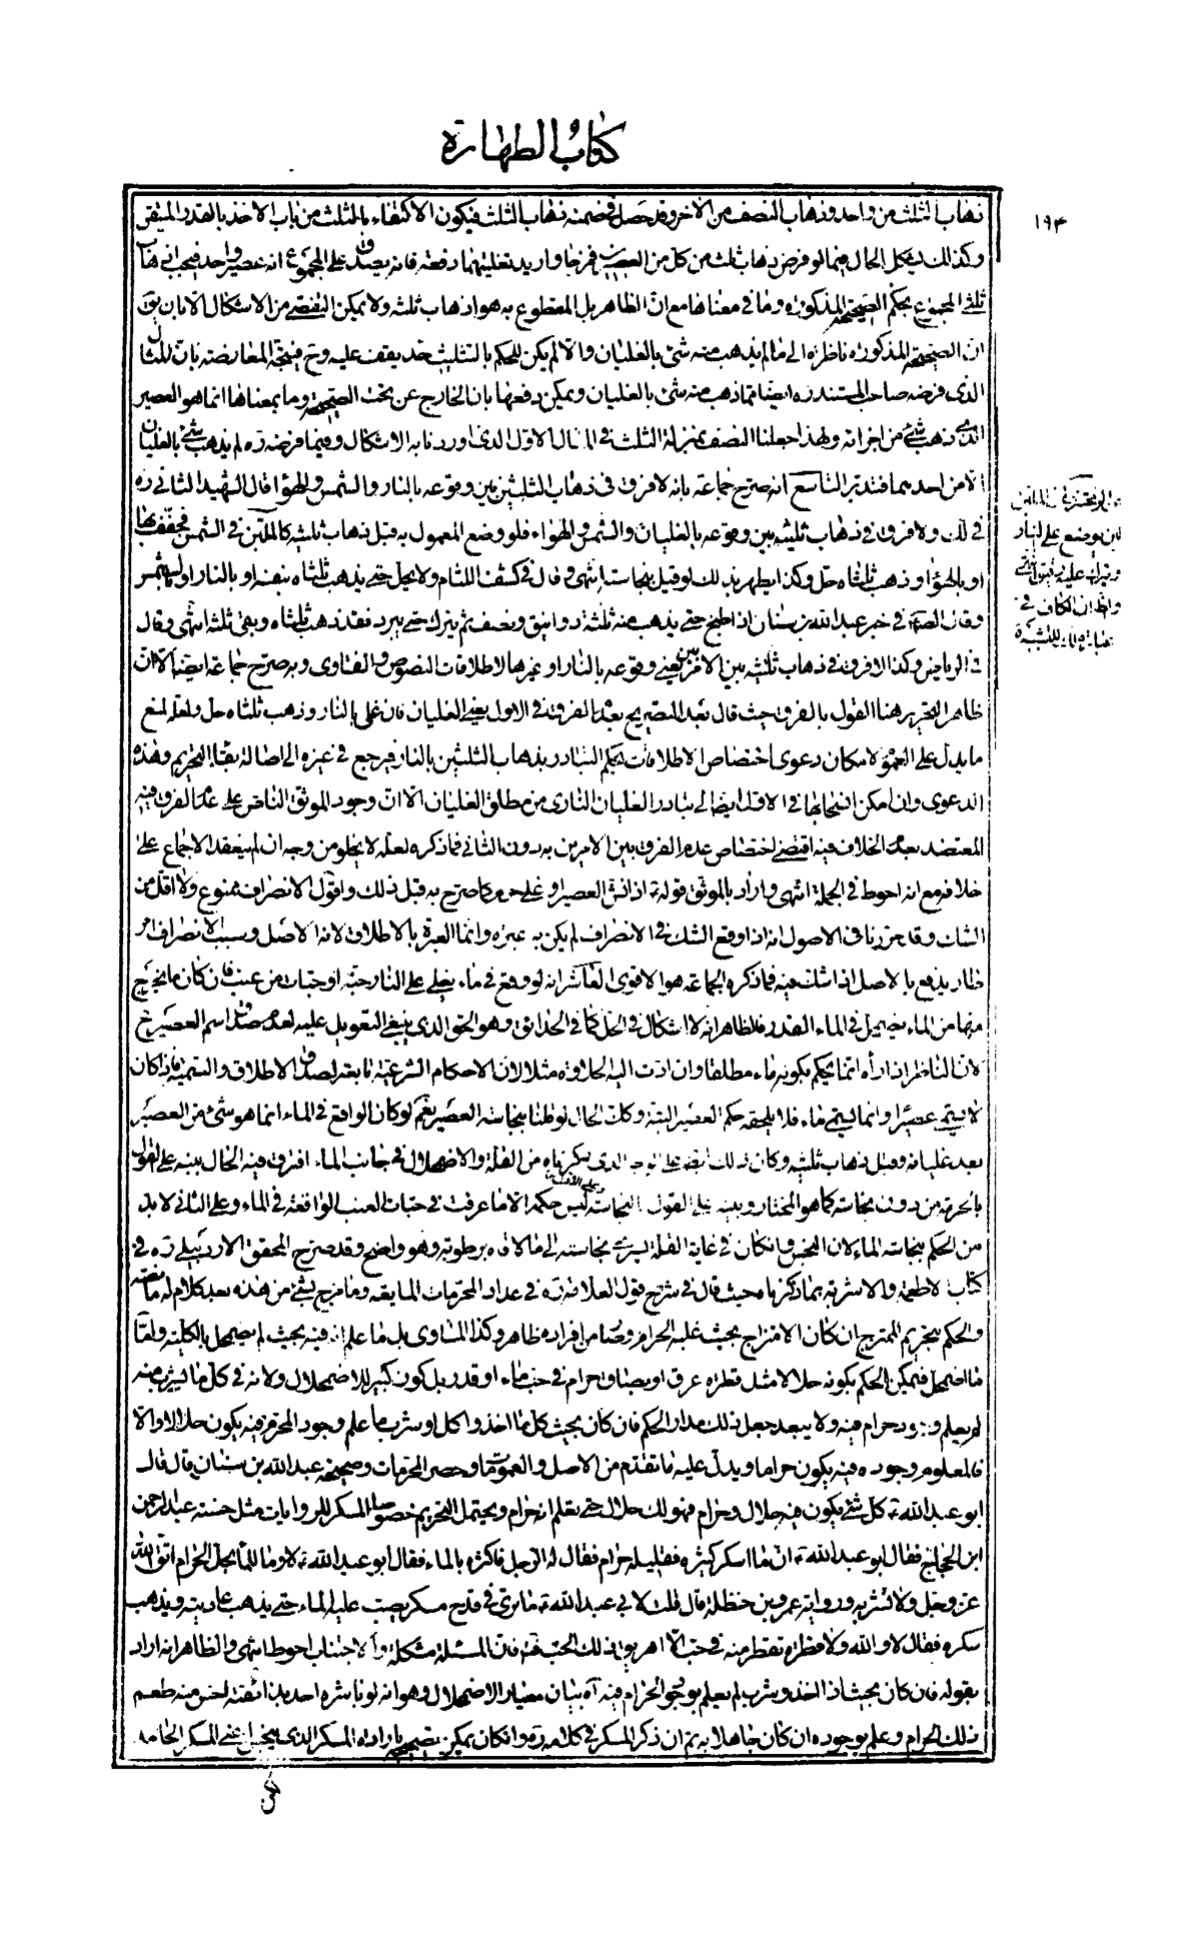 كتاب الطهارة
١٩٣
ذهاب الثلث من واحد وذهاب النصف من الاخر وقد حصل في ضمنه ذهاب الثلث فيكون الاكتفاء بالمثلث من باب الاخذ بالقدر المتيقن
وكذلك يشكل الحال فيما لو فرض ذهاب ثلث من كل من العصيرين فمزجا واريد تغليتهما دفعة فانه يصدق على المجموع انه عصير واحد فيجب ذهاب
ثلثي المجموع بحكم الصحيحة المذكورة وما في معناها مع ان الظاهر بل المقطوع به هو اذهاب ثلثه ولا يمكن التفصي من الاشكال الا بان يق
ان الصحيحة المذكورة ناظرة الى ما لم يذهب منه شئ بالغليان والا لم يكن للحكم بالتثليث حد يقف عليه وح فيتجه المعارضة بان المثال
الذي فرضه صاحب المستند ره ايضا مما ذهب منه شئ بالغليان ويمكن دفعها بان الخارج عن تحت الصحيحة وما بمعناها انما هو العصير
الذي ذهب شئ من اجزائه ولهذا جعلنا النصف بمنزلة الثلث في المثال الاول الذي اوردنا به الاشكال وفيما فرضه ره لم يذهب شئ بالغليان
الا من احدهما فتدبر التاسع انه صرح جماعة بانه لا فرق في ذهاب الثلثين بين وقوعه بالنار والشمس والهواء قال الشهيد الثاني ره
في لك ولا فرق في ذهاب ثلثيه بين وقوعه بالغليان والشمس والهواء فلو وضع المعمول به قبل ذهاب ثلثيه كالملبن في الشمس فجفف بها
او بالهواء وذهب ثلثاه حل وكذا يطهر بذلك لو قيل بنجاسته انتهى وقال في كشف اللثام ولا يحل حتى يذهب ثلثاه بنفسه او بالنار او بالشمس
وقال الصادق في خبر عبد الله بن سنان اذا طبخ حتى يذهب منه ثلثة دوانيق ونصف ثم يترك حتى يبرد فقد ذهب ثلثاه وبقى ثلثه انتهى وقال
في الرياض وكذا لا فرق في ذهاب ثلثيه بين الامرين يعني وقوعه بالنار او غيرها لاطلاقات النصوص والفتاوى وبه صرح جماعة ايضا الا ان
ظاهر التحرير هنا القول بالفرق حيث قال بعد التصريح بعدم الفرق في الاول يعني الغليان فان غلى بالنار وذهب ثلثاه حل ولعله لمنع
ما يدل على العموم لامكان دعوى اختصاص الاطلاقات بحكم التبادر بذهاب الثلثين بالنار فيرجع في غيره الى اصالة بقاء التحريم وهذه
الدعوى وان امكن انسحابها في الاول ايضا الى تبادر الغليان الناري من مطلق الغليان الا ان وجود الموثق الناص على عدم الفرق فيه
المعتضد بعدم الخلاف فيه اقتضى اختصاص عدم الفرق بين الامرين به دون الثاني فما ذكره لعله لا يخلو من وجه ان لم ينعقد الاجماع على
خلافه مع انه احوط في الجملة انتهى واراد بالموثق قوله ع اذا نش العصير او غلى حرم كما صرح به قبل ذلك واقول الانصراف ممنوع ولا اقل من
الشك وقد حررنا في الاصول انه اذا وقع الشك في الانصراف لم يكن به عبرة وانما العبرة بالاطلاق لانه الاصل وسبب الانصراف امر
طار يدفع بالاصل اذا شك فيه فما ذكره الجماعة هو الاقوى العاشر انه لو وقع في ماء يغلي على النار حبة او حبات من عنب فان كان ما يخرج
منها من الماء يضمحل في الماء القدر فالظاهر انه لا اشكال في الحل كما في الحدائق وهو الحق الذي ينبغي التعويل عليه لعدم صدق اسم العصير ح
لان الناظر اذا رأه انما يحكم بكونه ماء مطلقا وان ادت اليه الحلاوة مثلا لان الاحكام الشرعية تابعة لصدق الاطلاق والتسمية فاذا كان
لا يسمى عصيرا وانما يسمى ماء فلا يلحقه حكم العصير البتة وكذلك الحال لو قلنا بنجاسة العصير نعم لو كان الواقع في الماء انما هو شئ من العصير
بعد غليانه وقبل ذهاب ثلثيه وكان ذلك ايضا على الوجه الذي ذكرناه من القلة والاضمحلال في جانب الماء افترق فيه الحال بينه على القول
بالحرمة من دون نجاسة كما هو المختار وبينه على القول بالنجاسة وعلى الاول ليس حكمه الا ما عرفت في حبات العنب الواقعة في الماء وعلى الثاني لا بد
من الحكم بنجاسة الماء لان النجس وان كان في غاية القلة يسري نجاسته الى ما لاقاه برطوبة وهو واضح وقد صرح المحقق الاردبيلي ره في
كتاب الاطعمة والاشربة بما ذكرناه حيث قال في شرح قول العلامة ره في عداد المحرمات المايعة وما مزج بشئ من هذه بعد كلام له ما نصه
والحكم بتحريم الممتزج ان كان الامتزاج بحيث غلبه الحرام وصار من افراده ظاهر وكذا المساوي بل ما علم انه فيه بحيث لم يضمحل بالكلية واما
ما اضمحل فيمكن الحكم بكونه حلالا مثل قطرة عرق او بصاق حرام في حب ماء او قدر بل كون كبير للاضمحلال ولانه في كل ما يشرب منه
لم يعلم وجود حرام فيه ولا يبعد جعل ذلك مدار الحكم فان كان بحيث كل ما اخذ واكل او شرب ما علم وجود المحرم فيه يكون حلالا والا
فالمعلوم وجوده فيه يكون حراما ويدل عليه ما تقدم من الاصل والعمومات وحصر المحرمات وصحيحة عبد الله بن سنان قال قال
ابو عبد الله ع كل شئ يكون فيه حلال وحرام فهو لك حلال حتى تعلم انه حرام ويحتمل التحريم خصوصا المسكر للروايات مثل حسنة عبد الرحمن
ابن الحجاج فقال ابو عبد الله ع ان ما اسكر كثيره فقليله حرام فقال له الرجل فاكثره بالماء فقال ابو عبد الله ع لا وما للماء يحل الحرام اتق الله
عز وجل ولا تشربه ورواية عمرو بن حنظلة قال قلت لابي عبد الله ع ما ترى في قدح مسكر يصب عليه الماء حتى يذهب عاديته ويذهب
سكره فقال لا والله ولا قطرة تقطر منه في حب الا اهريق ذلك الحب فت فان المسئلة مشكلة والاجتناب احوط انتهى والظاهر انه اراد
بقوله فان كان بحيث اذا اخذ وشرب لم يعلم بوجود الحرام فيه آه بيان معيار الاضمحلال وهو انه لو باشره احد بذائقته لحس منه طعم
ذلك الحرام وعلم بوجوده ان كان جاهلا به ثم ان ذكر المسكر في كلامه ره وان كان يمكن تصحيحه بارادة المسكر الذي